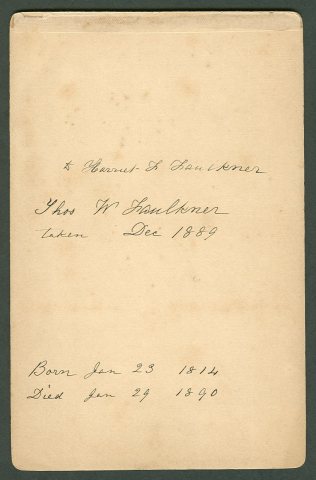 to Harriet L Faulkner
Thos W Faulkner
taken Dec 1889
Born Jan 23 1814
Died Jan 29 1890